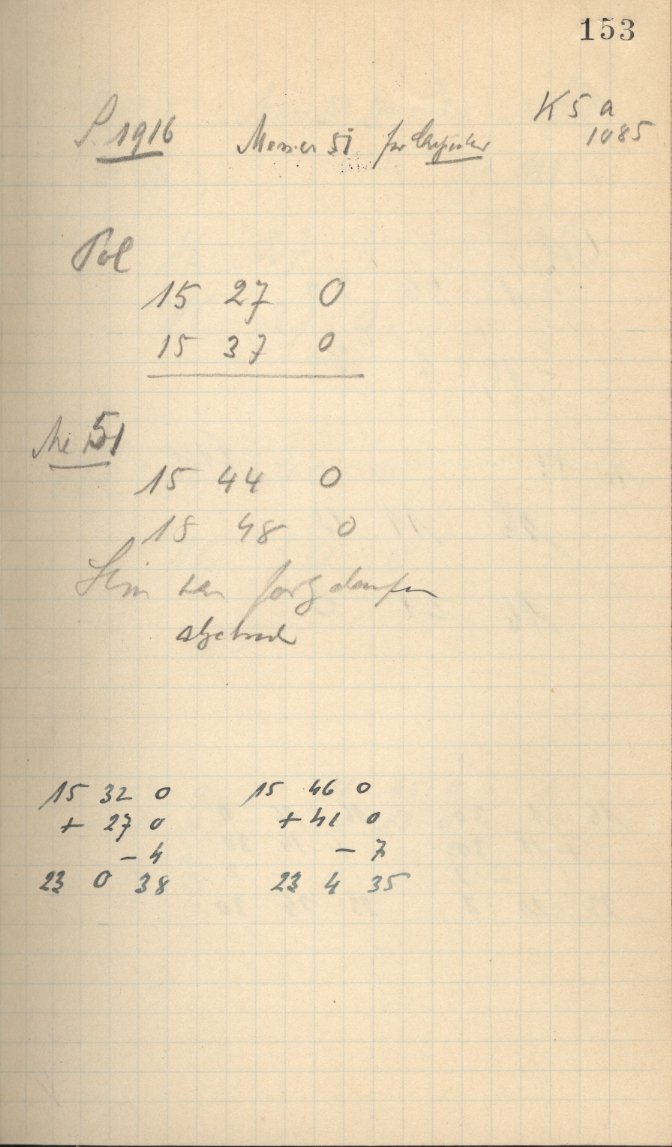 153
P. 1916 Messier 51 für K 5 a
1085
Pol
15 27 0
15 37 0
Me 51
15 44 0
15 48 0
15 32 0 15 46 0
+ 27 0 + 41 0
- 4 - 7
23 0 38 23 4 35